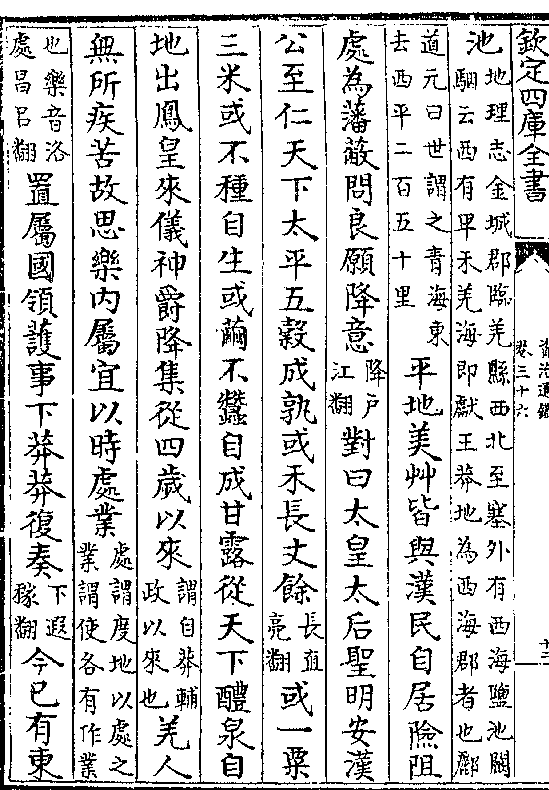 欽定四庫全書
資治通鑑
卷三十六
池
地理志金城郡臨羌縣西北至塞外有西海鹽池闞
駰云西有卑禾羌海即獻王莽地為西海郡者也酈
道元曰世謂之青海東
去西平二百五十里
平地美艸皆與漢民自居險阻
處為藩蔽問良願降意
降户
江翻
對曰太皇太后聖明安漢
公至仁天下太平五穀成孰或禾長丈餘
長直
亮翻
或一粟
三米或不種自生或繭不蠶自成甘露從天下醴泉自
地出鳳皇來儀神爵降集從四歲以來
謂自莽輔
政以來也
羌人
無所疾苦故思樂内屬宜以時處業
處謂度地以處之
業謂使各有作業
也樂音洛
處昌呂翻
置屬國領護事下莽莽復奏
下遐
稼翻
今已有東